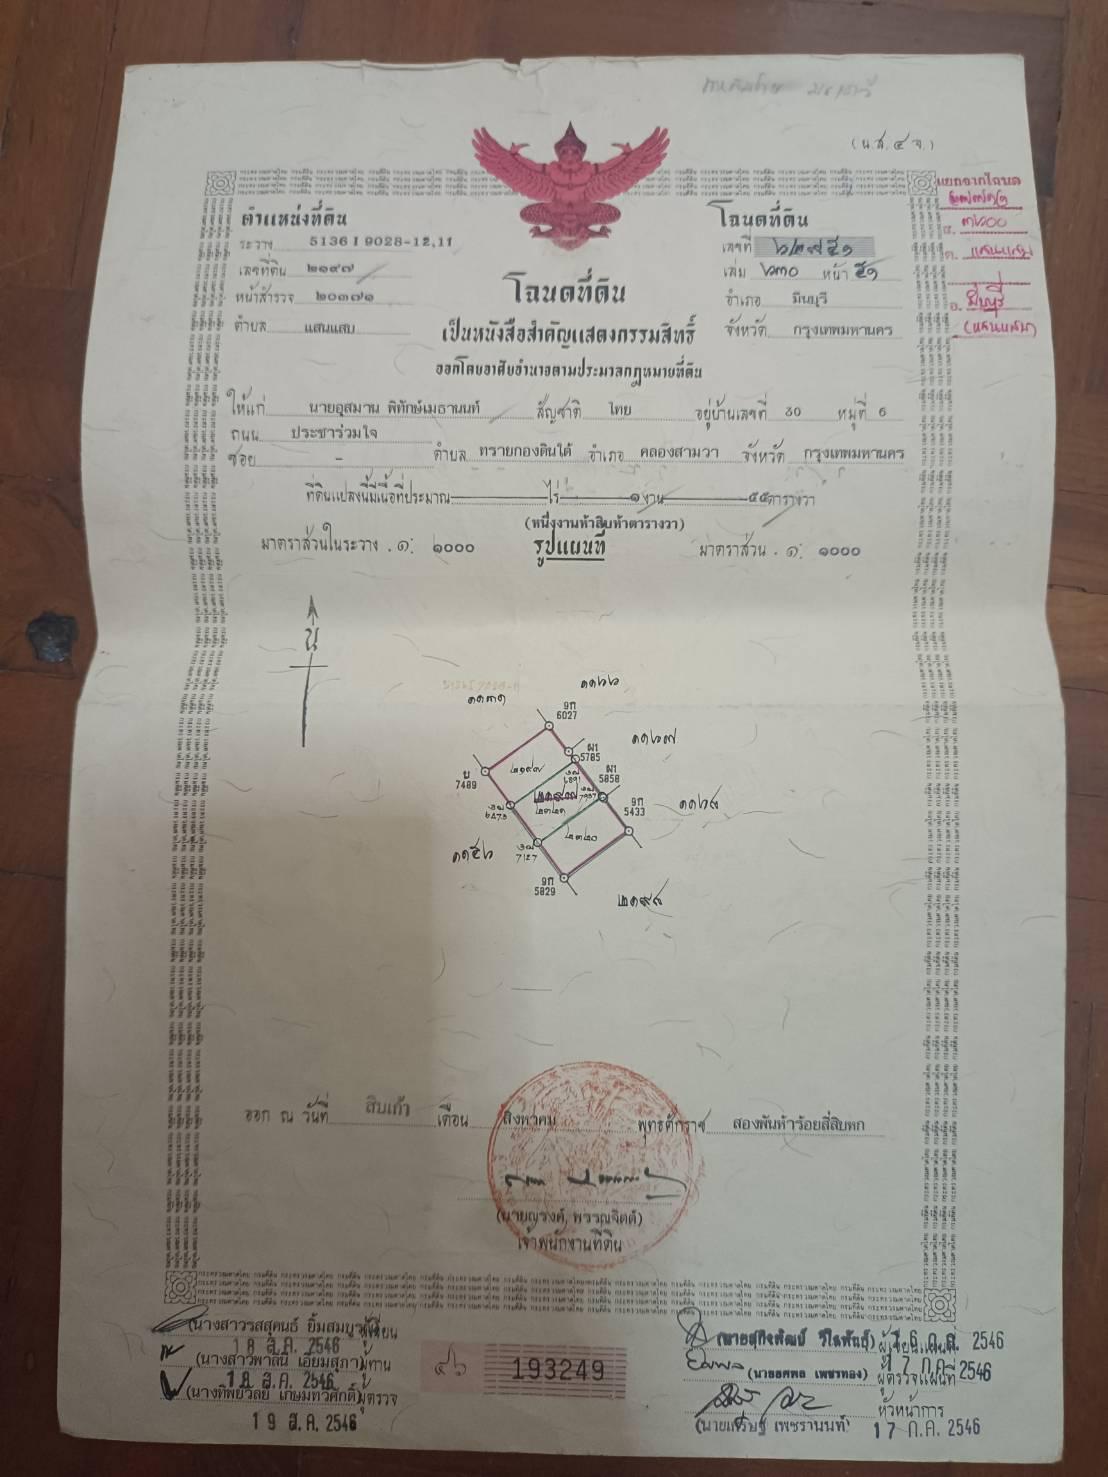 (น.ส.๔ จ.)
แยกจากโฉนด
ตำแหน่งที่ดิน
ระวาง 5136 I 9028-12,11
เลขที่ดิน ๒๑๙๗
หน้าสำรวจ ๒๐๓๗๑
ตำบล แสนแสบ
โฉนดที่ดิน
เลขที่
เล่ม ๖๓๐ หน้า ๕๑
อำเภอ มีนบุรี
จังหวัด กรุงเทพมหานคร
ต. แสนแสบ
อ. มีนบุรี
(แสนแสบ)
โฉนดที่ดิน
เป็นหนังสือสำคัญแสดงกรรมสิทธิ์
ออกโดยอาศัยอำนาจตามประมวลกฎหมายที่ดิน
ให้แก่ นายอุสมาน พิทักษ์เมธานนท์ สัญชาติ ไทย อยู่บ้านเลขที่ 30 หมู่ที่ 6
ถนน ประชาร่วมใจ
ซอย - ตำบล ทรายกองดินใต้ อำเภอ คลองสามวา จังหวัด กรุงเทพมหานคร
ที่ดินแปลงนี้มีเนื้อที่ประมาณ ไร่ ๑ งาน ๕๕ ตารางวา
(หนึ่งงานห้าสิบห้าตารางวา)
มาตราส่วนในระวาง ๑: ๑๐๐๐ รูปแผนที่ มาตราส่วน ๑: ๑๐๐๐
น
9ก
6027
ผ1
5785
น
7489
๒๑๙๗
ผ1
5858
9ก
5433
๒๓๒๑
๒๓๒๐
7127
9ก
5829
๒๑๙๘
ออก ณ วันที่ สิบเก้า เดือน สิงหาคม พุทธศักราช สองพันห้าร้อยสี่สิบหก
(นายณรงค์ พรรณจิตต์)
เจ้าพนักงานที่ดิน
(นางสาวรสสุคนธ์ ยิ้มสมบูรณ์) ผู้เขียน
18 ส.ค. 2546
(นางสาวพาลินี เอี่ยมสุภา) ผู้ทาน
18 ส.ค. 2546
(นางทิพย์วัลย์ เกษมทวีศักดิ์) ผู้ตรวจ
19 ส.ค. 2546
๔๖
193249
(นายสุกิจพัฒน์ วิไลพันธุ์) ผู้เขียนแผนที่ 16 ก.ค. 2546
(นายยศพล เพชรทอง) ผู้ตรวจแผนที่ 17 ก.ค. 2546
หัวหน้าการ
(นายเสริฐ เพชรานนท์) 17 ก.ค. 2546